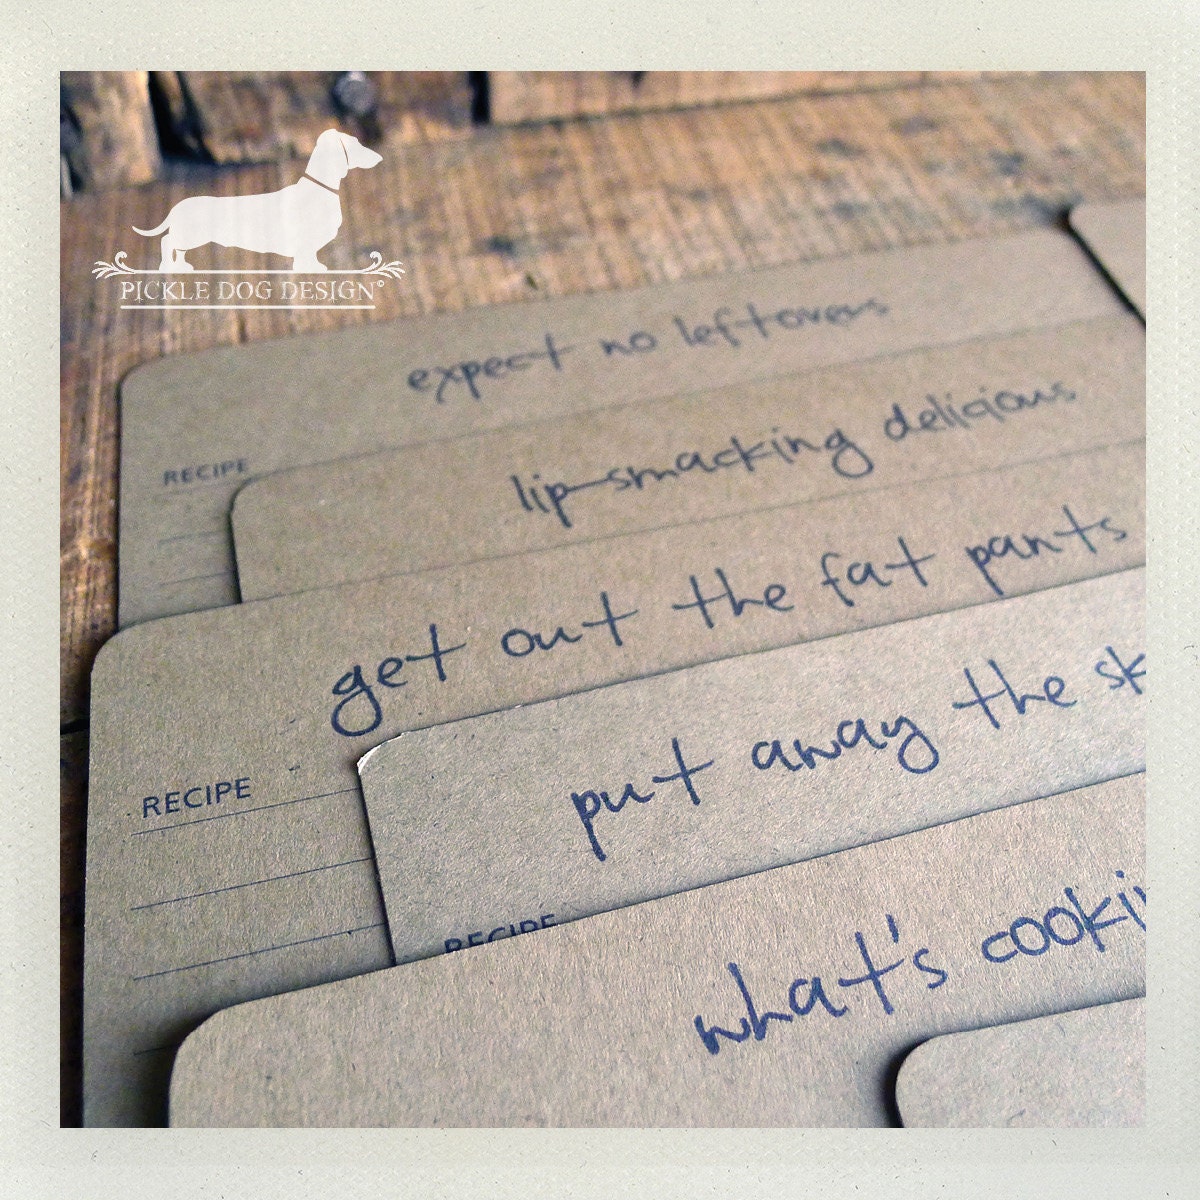 PICKLE DOG DESIGN
expect no leftovers
RECIPE
lip-smacking delicious
get out the fat pants
RECIPE
put away the sk
RECIPE
what's cooki